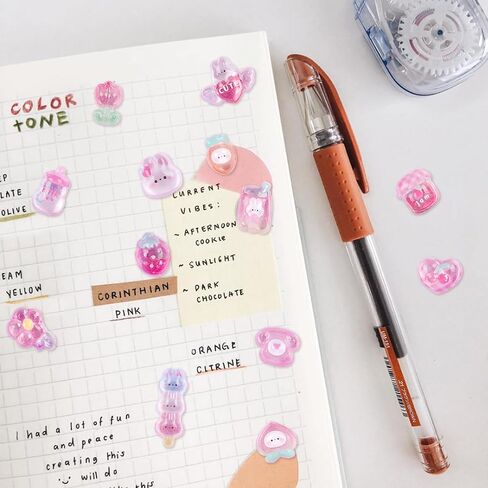 COLOR
TONE
CUTE
OLIVE
YELLOW
CURRENT
VIBES:
~ AFTERNOON
COOKIE
~ SUNLIGHT
~ DARK
CHOCOLATE
CORINTHIAN
PINK
ORANGE
CITRINE
I had a lot of fun
and peace
creating this
will do
this
Jam